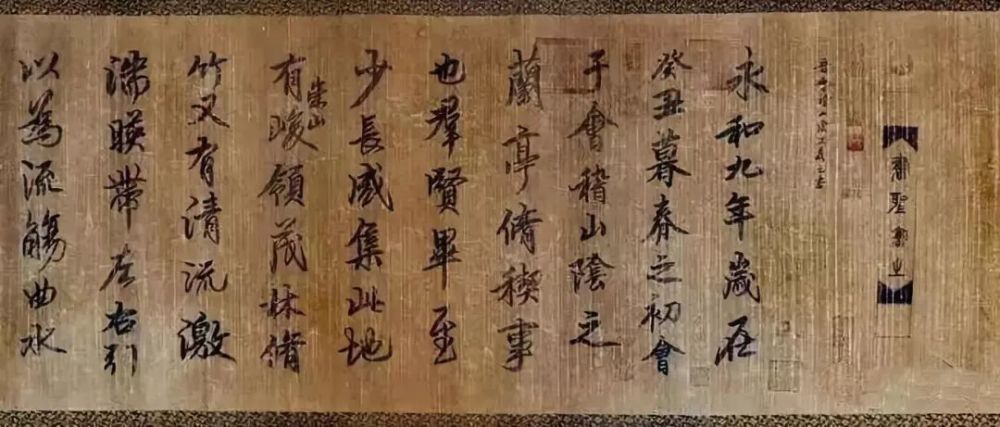 永和九年歲在
癸丑暮春之初會
于會稽山陰之
蘭亭脩稧事
也羣賢畢至
少長咸集此地
有崇山峻領茂林脩
竹又有清流激
湍暎帶左右引
以為流觴曲水